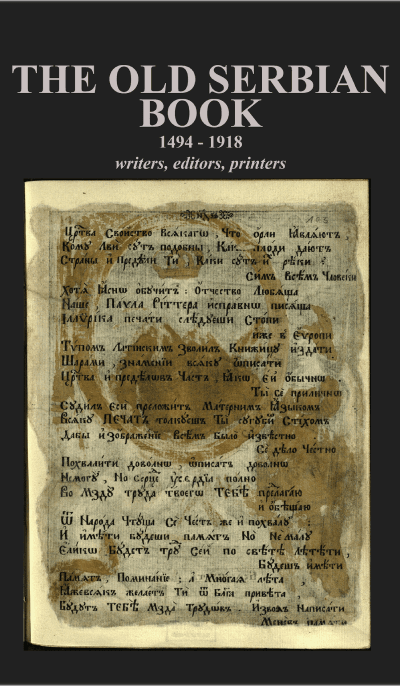 THE OLD SERBIAN
BOOK
1494 - 1918
writers, editors, printers
Црⷭ҇тва Свойство Всѧкагѡ, Что орли ꙗвлѧютъ,
Кому Лви сутъ подобны, Какѡ плоди даютъ
Страны и Предѣли Ти, Каки сутъ и рѣки:
Симъ Всѣмъ Человѣки
Хотѧ Ꙗснѡ обучитъ: Отчество Любѧща
Наше, Паѵла Ріттера исправнѡ писѧща
печати слѣдуеши Стопи
иже в Еѵропи
Тѵпомъ Лѣтинскимъ Зволилъ Книжицу издати
Шарами, знаменїи всѧку ѡписати
Црⷭ҇тва и предѣлѡвъ Частъ, Ꙗкѡ Ей обычнѡ.
Ты се приличнѡ
Судилъ Еси преложитъ Матернимъ Ꙗзыкомъ
Всѧку ПЕЧАТЪ толкуешъ Ты сугубїй Стїхомъ
Дабы изображенїе Всѣмъ Было извѣстно
Сѐ дѣло Честно
Похвалити доволнѡ, ѡписатъ доволнѡ
Немогу, Но Серце полно
Во Мзду труда твоегѡ ТЕБѢ прелагаю
и обѣщаю
Ѿ Народа Чтуща Се Честъ же и похвалу:
И имѣти будеши памѧтъ Но Немалу
Еликѡ Будетъ труⷣ Сеи по свѣтѣ Лѣтѣти,
Будешъ имѣти
Памѧтъ, Поминанїе: а Многаѧ лѣта
желаетъ Ти Ѿ Бга привѣта,
Будутъ ТЕБѢ Мзда Трудѡвъ. Изволъ Написати